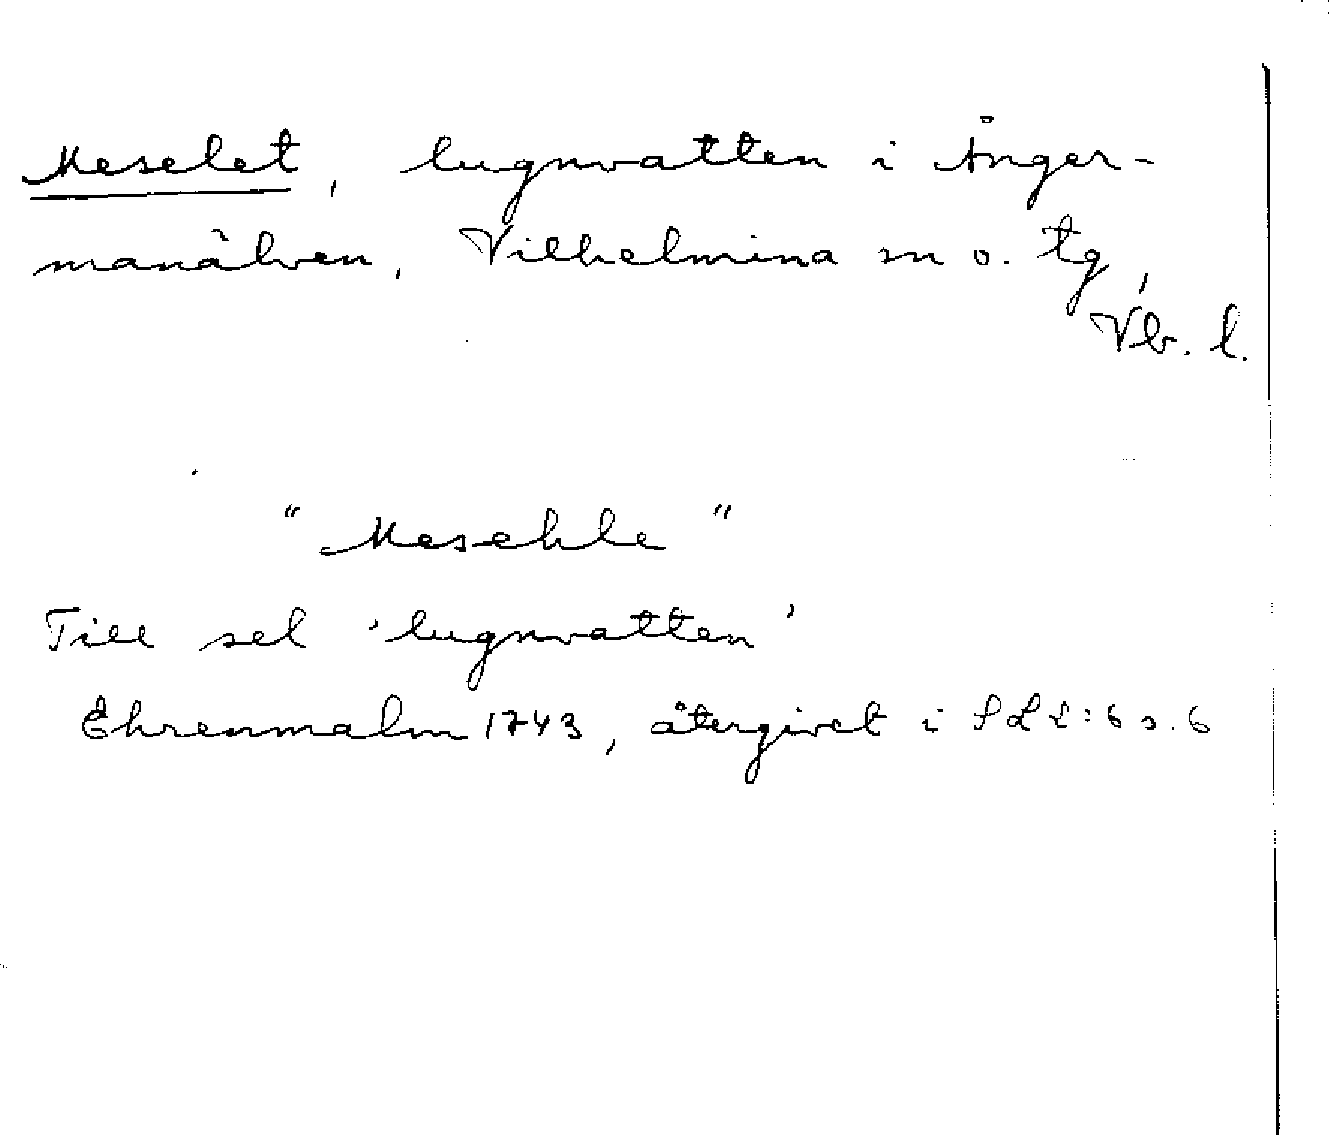 Meselet, lugnvatten i Ånger-
manälven, Vilhelmina sn o. tg,
Vb. l.
"Mesehle"
Till sel 'lugnvatten'
Ehrenmalm 1743, återgivet i SLL:6 s. 6